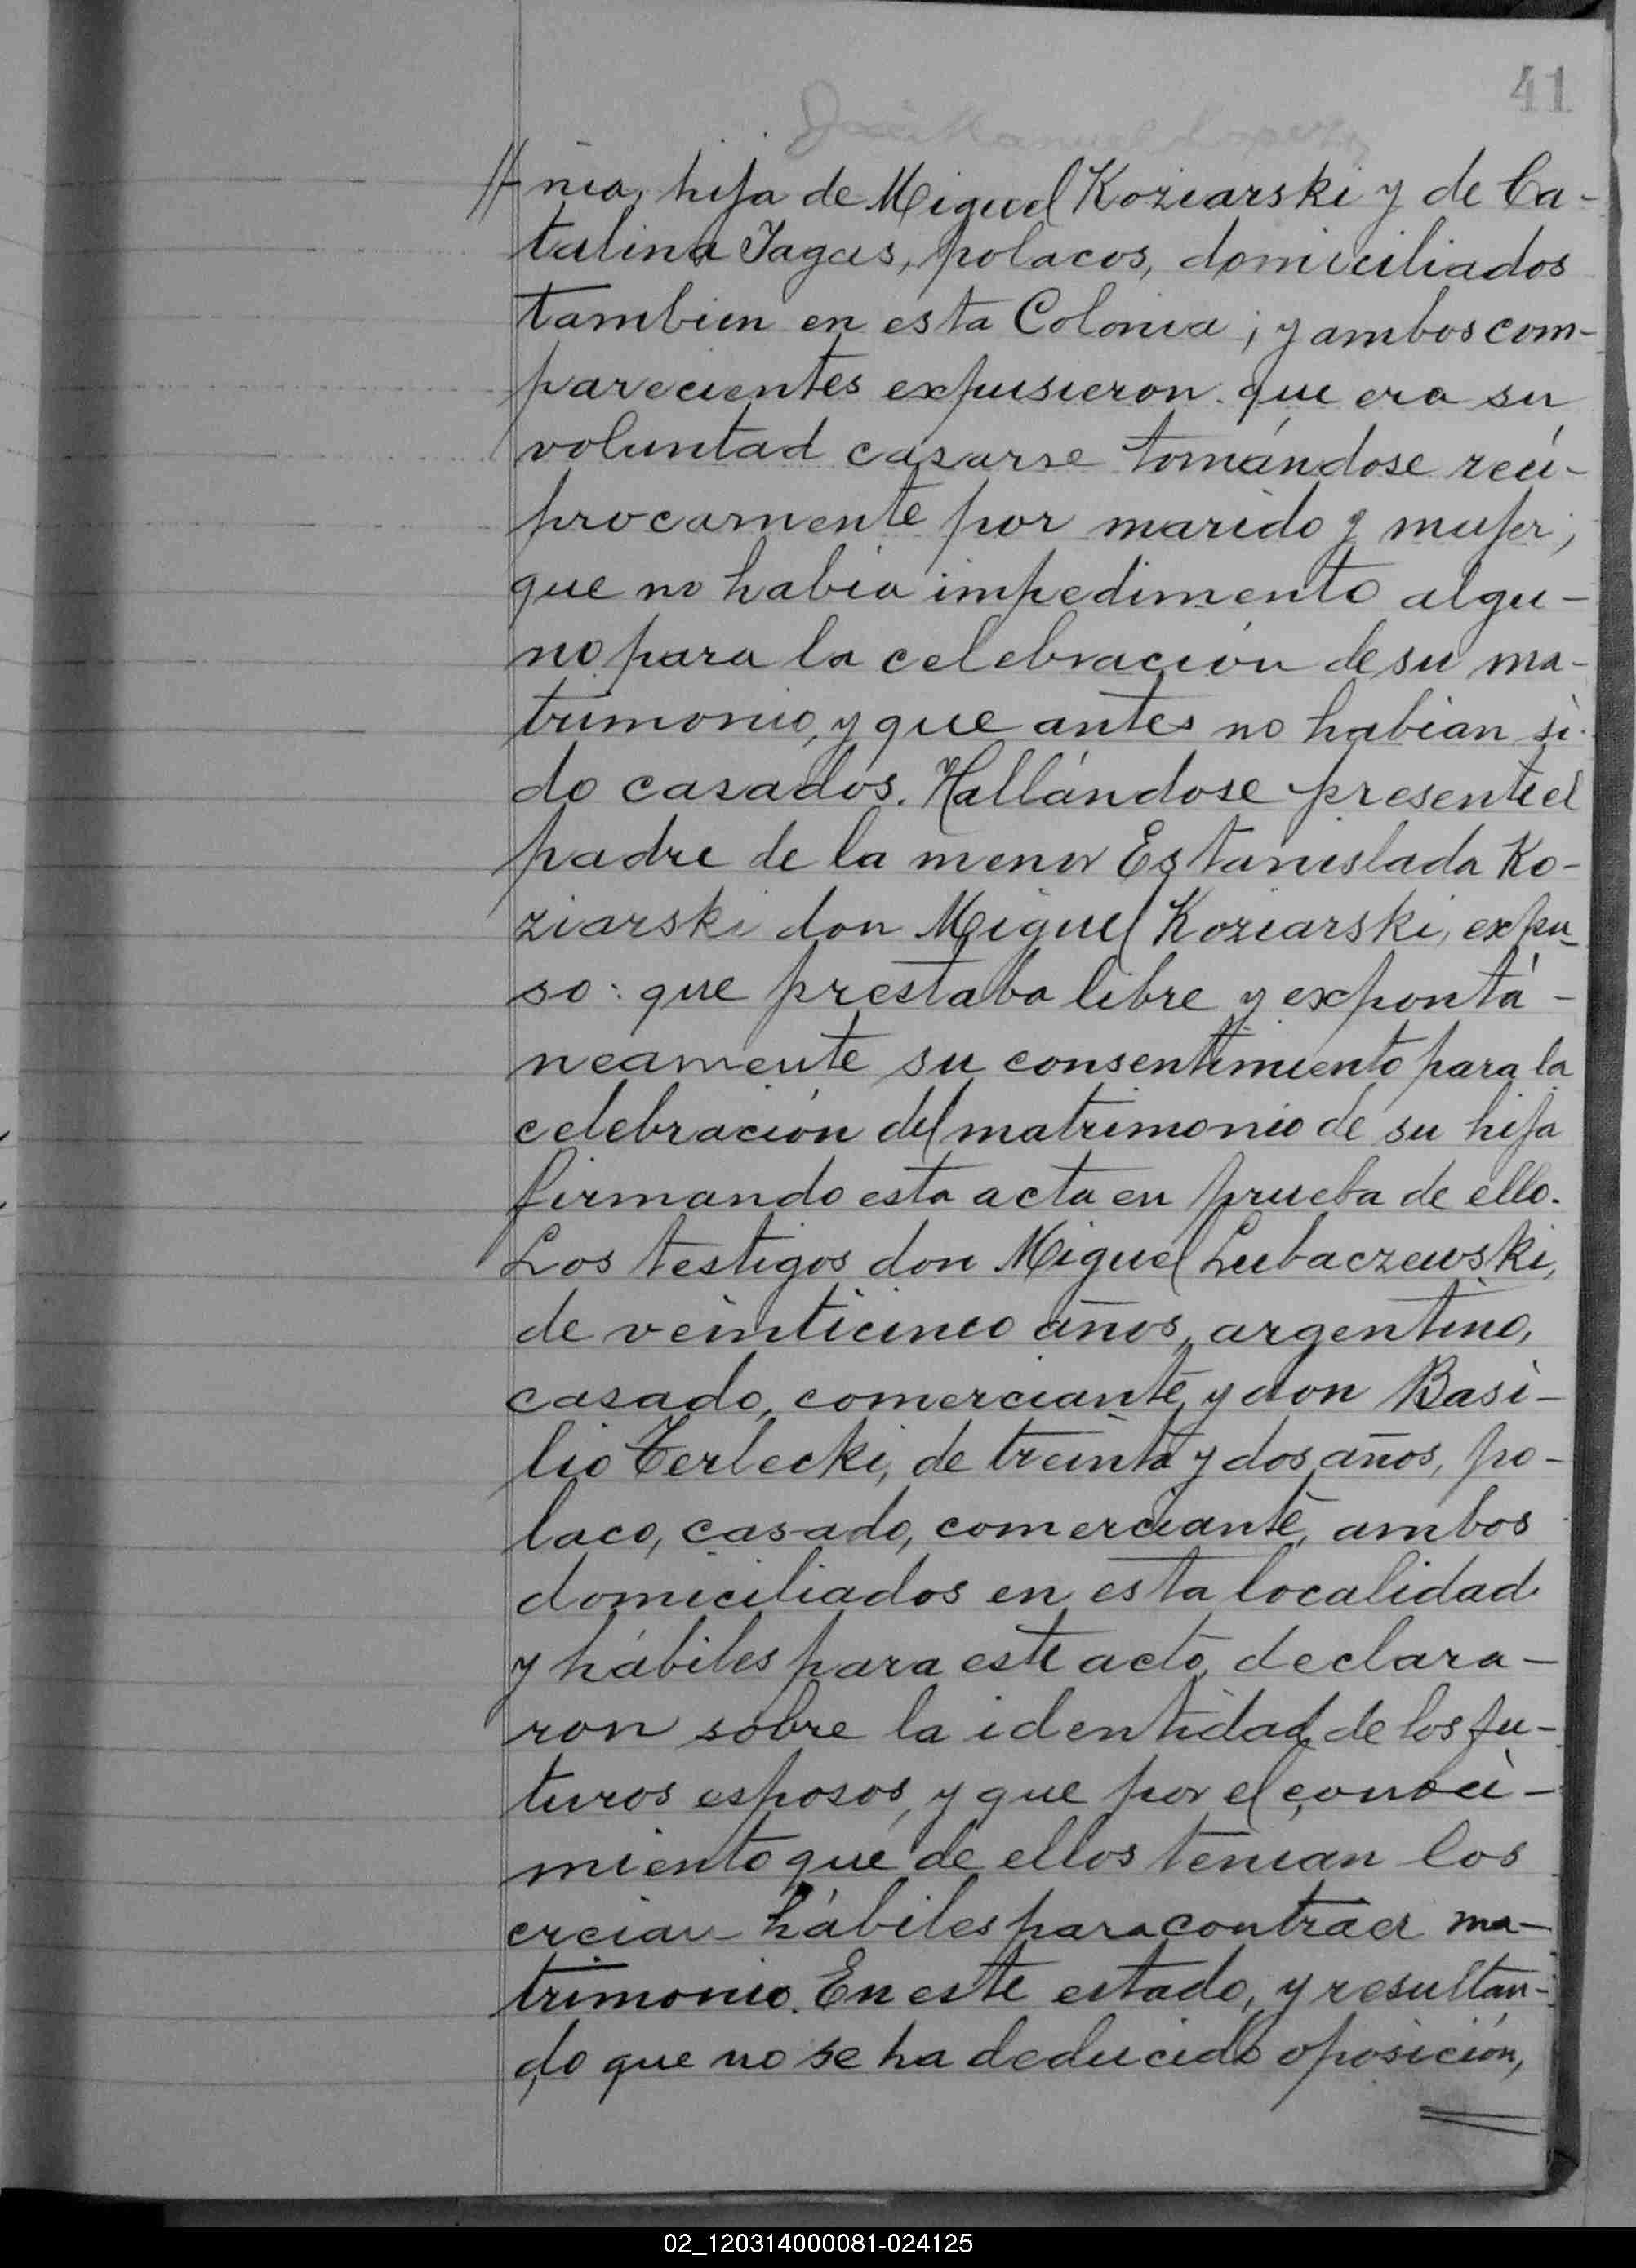 41
//-nia, hija de Miguel Koziarski y de Ca-
talina Jagas, polacos, domiciliados
tambien en esta Colonia; y ambos com-
parecientes expusieron: que era su
voluntad casarse tomándose recí-
procamente por marido y mujer;
que no había impedimento algu-
no para la celebración de su ma-
trimonio, y que antes no habian si-
do casados. Hallándose presente el
padre de la menor Estanislada Ko-
ziarski don Miguel Koziarski, expu-
so: que prestaba libre y expontá-
neamente su consentimiento para la
celebración del matrimonio de su hija
firmando esta acta en prueba de ello.
Los testigos don Miguel Lubaczewski,
de veinticinco años, argentino,
casado, comerciante, y don Basi-
lio Terlecki, de treinta y dos años, po-
laco, casado, comerciante, ambos
domiciliados en esta localidad
y hábiles para este acto, declara-
ron sobre la identidad de los fu-
turos esposos, y que por el conoci-
miento que de ellos tenian los
creian hábiles para contraer ma-
trimonio. En este estado, y resultan-
do que no se ha deducido oposición,
02_120314000081-024125